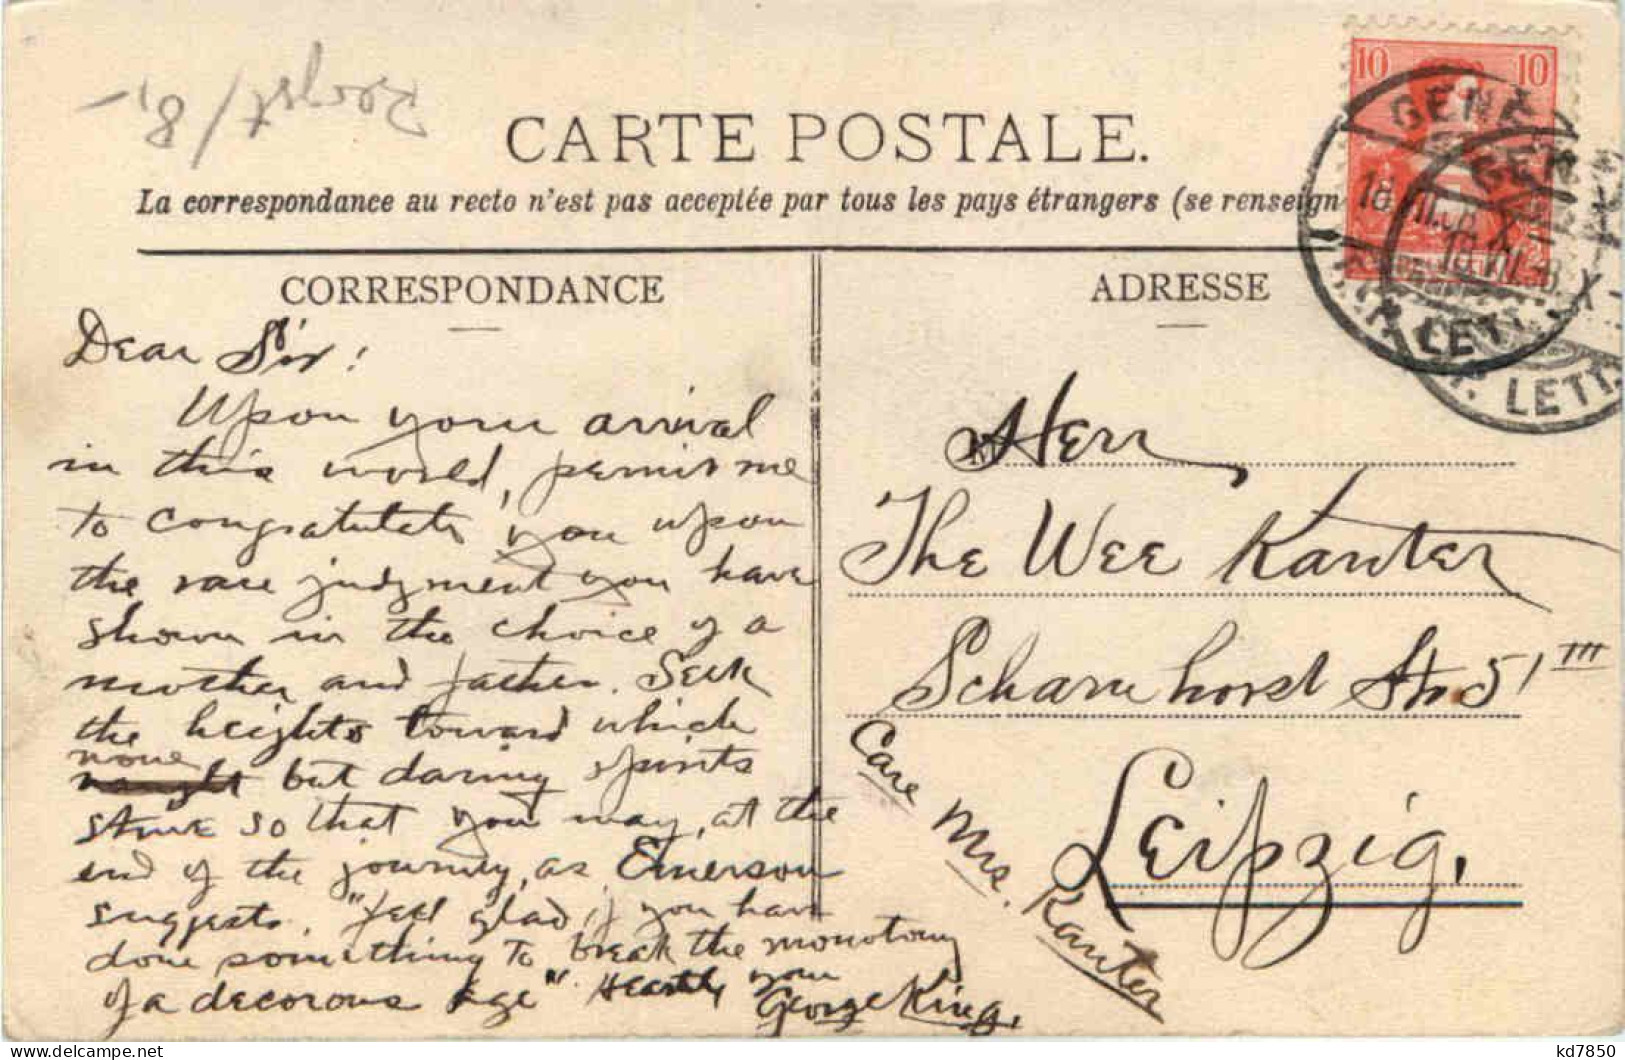 CARTE POSTALE.
La correspondance au recto n'est pas acceptée par tous les pays étrangers (se renseign
CORRESPONDANCE
Dear Sir!
Upon your arrival
in this world, permit me
to congratulate you upon
the rare judgment you have
shown in the choice of a
mother and father. Seek
the heights toward which
none
naught but daring spirits
strive so that you may, at the
end of the journey, as Emerson
suggests, "feel glad if you have
done something to break the monotony
of a decorous age". Heartily your
George King.
ADRESSE
10 10
GENÈ
LETT.
GEN
LETT.
M
Herr
The Wee Kanter
Scharnhorst Str. 51 III
Leipzig.
Care Mrs. Kanter
kd7850